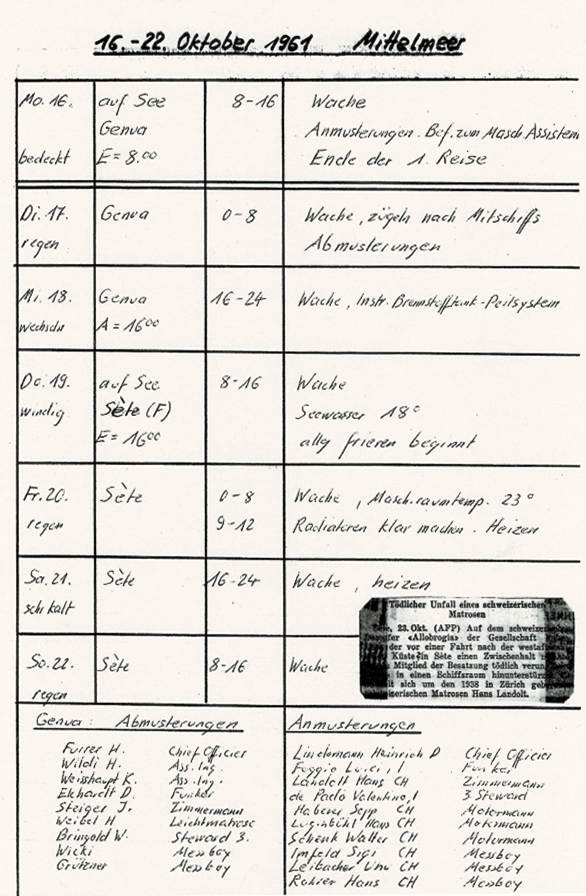 16.-22. Oktober 1961 Mittelmeer
Mo. 16. auf See 8-16 Wache
Genua Anmusterungen. Bef. zum Masch. Assistent
bedeckt E = 8.00 Ende der 1. Reise
Di. 17. Genua 0-8 Wache, zügeln nach Mitschiffs
regen Abmusterungen
Mi. 18. Genua 16-24 Wache, Instr. Brennstofftank-Peilsystem
A = 16⁰⁰
Do. 19. auf See 8-16 Wache
windig Sète (F) Seewasser 18°
E = 16⁰⁰ allg frieren beginnt
Fr. 20. Sète 0-8 Wache, Masch.raumtemp. 23°
regen 9-12 Radiatoren klar machen. Heizen
Sa. 21. Sète 16-24 Wache, heizen
kalt
So. 22. Sète 8-16 Wache
regen
Tödlicher Unfall eines schweizerischen
Matrosen
23. Okt. (AFP) Auf dem schweizer
«Allobrogia» der Gesellschaft
der vor einer Fahrt nach der westafri
Küste in Sète einen Zwischenhalt
Mitglied der Besatzung tödlich verun
in einen Schiffsraum hinunterstür
sich um den 1938 in Zürich geb
zerischen Matrosen Hans Landolt.
Genua: Abmusterungen
Furrer H. Chief Officier
Wildi H. Ass. Ing.
Weisshaupt K. Ass. Ing.
Ekhardt D. Funker
Steiger J. Zimmermann
Weibel H Leichtmatrose
Bringold W. Steward 3.
Wicki Messboy
Grützner Messboy
Anmusterungen
Lindemann Heinrich D Chief Officier
Foggio I Funker
Landolt Hans CH Zimmermann
de Paolo Valentino, I 3 Steward
Haberer Sepp CH Motormann
Luginbühl Hans CH Motormann
Schenk Walter CH Motormann
Imfeld Sigi CH Messboy
Leibacher CH Messboy
Rohrer Hans CH Messboy